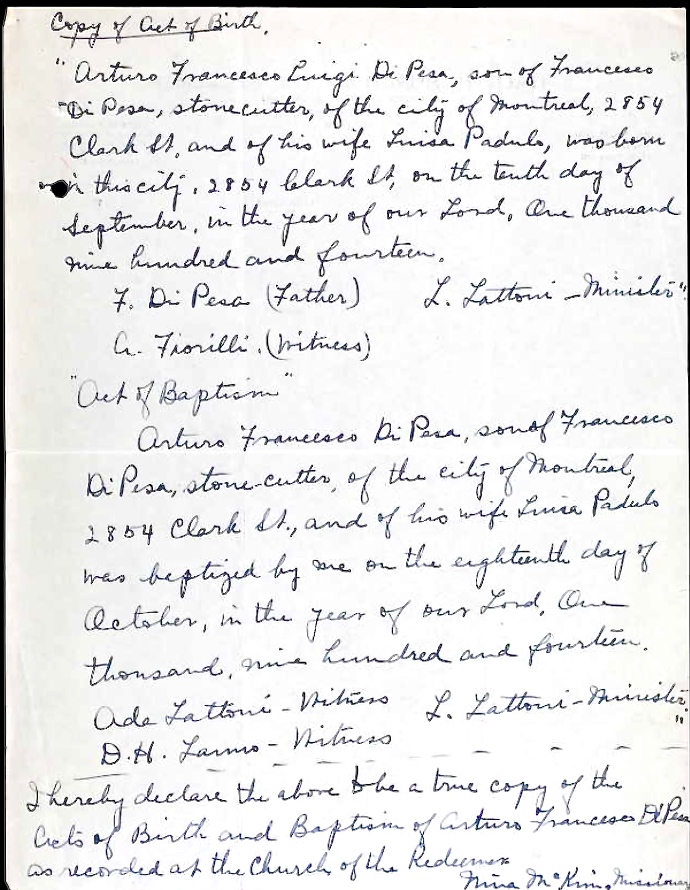 Copy of Act of Birth.
"Arturo Francesco Luigi Di Pesa, son of Francesco
Di Pesa, stonecutter, of the city of Montreal, 2854
Clark St, and of his wife Luisa Padulo, was born
in this city, 2854 Clark St, on the tenth day of
September, in the year of our Lord, One thousand
nine hundred and fourteen.
F. Di Pesa (Father) L. Lattoni - Minister"
A. Fiorilli. (Witness)
"Act of Baptism"
Arturo Francesco Di Pesa, son of Francesco
Di Pesa, stone-cutter, of the city of Montreal,
2854 Clark St., and of his wife Luisa Padulo
was baptized by me on the eighteenth day of
October, in the year of our Lord, One
thousand, nine hundred and fourteen.
Ada Lattoni - Witness L. Lattoni - Minister"
D.H. - Witness
I hereby declare the above to be a true copy of the
Acts of Birth and Baptism of Arturo Francesco Di Pesa
as recorded at the Church of the Redeemer
Nina McKim, Missionary